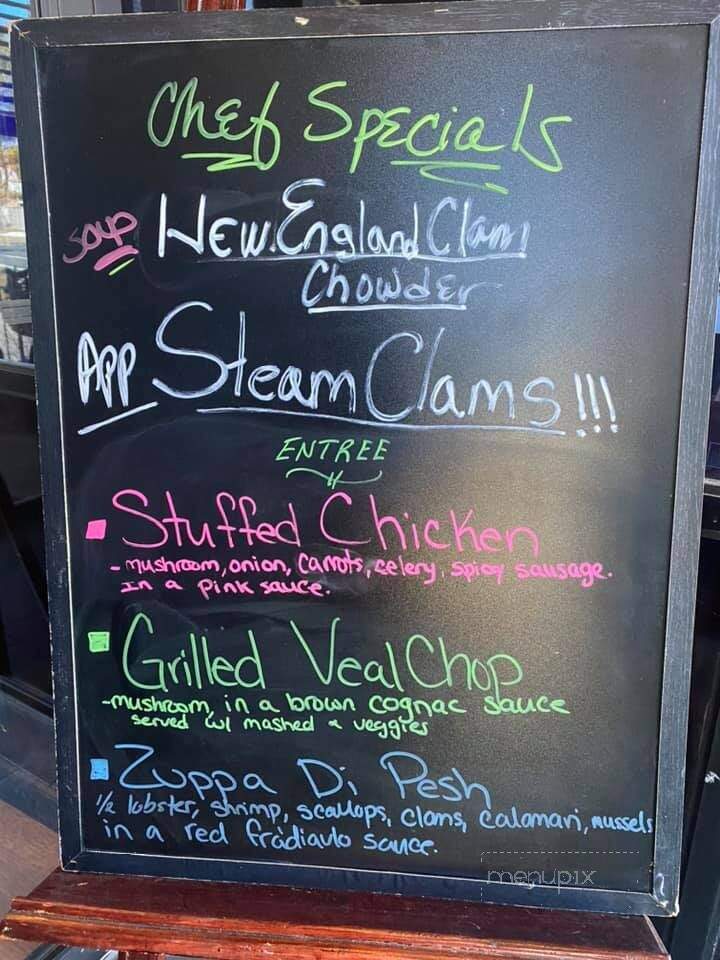 Chef Specials
Soup New England Clam
Chowder
App Steam Clams!!!
ENTREE
Stuffed Chicken
- mushroom, onion, carrots, celery, spicy sausage.
In a pink sauce.
Grilled Veal Chop
- mushroom, in a brown cognac sauce
served w/ mashed & veggies
Zuppa Di Pesh
1/2 lobster, shrimp, scallops, clams, calamari, mussels
in a red fradiavlo sauce.
menupix